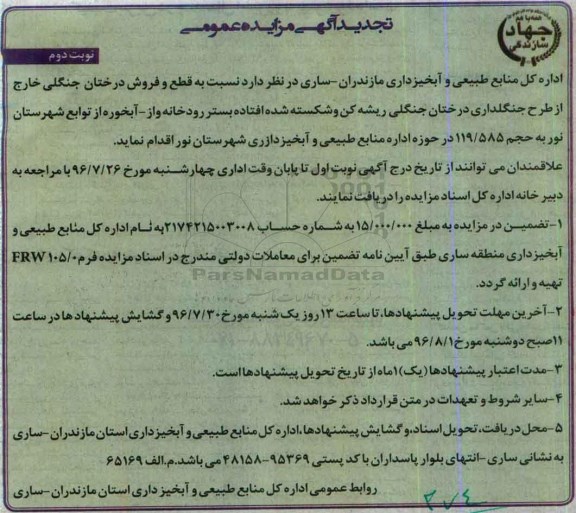 تجدید آگهی مزایده عمومی
همه با هم
جهاد
سازندگی
نوبت دوم
اداره کل منابع طبیعی و آبخیزداری مازندران -ساری در نظر دارد نسبت به قطع و فروش درختان جنگلی خارج
از طرح جنگلداری درختان جنگلی ریشه کن وشکسته شده افتاده بستر رودخانه واز -آبخوره از توابع شهرستان
نور به حجم ۱۱۹/۵۸۵ در حوزه اداره منابع طبیعی و آبخیزداری شهرستان نور اقدام نماید.
علاقمندان می توانند از تاریخ درج آگهی نوبت اول تا پایان وقت اداری چهارشنبه مورخ ۹۶/۷/۲۶ با مراجعه به
دبیر خانه اداره کل اسناد مزایده را دریافت نمایند.
۱-تضمین در مزایده به مبلغ ۱۵/۰۰۰/۰۰۰ به شماره حساب ۲۱۷۴۲۱۵۰۰۳۰۰۸ به نام اداره کل منابع طبیعی و
آبخیزداری منطقه ساری طبق آیین نامه تضمین برای معاملات دولتی مندرج در اسناد مزایده فرم FRW ۱۰۵/۰
تهیه و ارائه گردد.
ParsNamadData
۲-آخرین مهلت تحویل پیشنهادها، تا ساعت ۱۳ روز یک شنبه مورخ ۹۶/۷/۳۰ و گشایش پیشنهادها در ساعت
۱۱ صبح دوشنبه مورخ ۹۶/۸/۱ می باشد.
۳-مدت اعتبار پیشنهادها (یک) ۱ماه از تاریخ تحویل پیشنهادها است.
۴-سایر شروط و تعهدات در متن قرارداد ذکر خواهد شد.
۵-محل دریافت، تحویل اسناد، و گشایش پیشنهادها، اداره کل منابع طبیعی و آبخیزداری استان مازندران -ساری
به نشانی ساری -انتهای بلوار پاسداران با کد پستی ۹۵۳۶۹-۴۸۱۵۸ می باشد.م.الف ۶۵۱۶۹
روابط عمومی اداره کل منابع طبیعی و آبخیزداری استان مازندران -ساری
۲۷۴